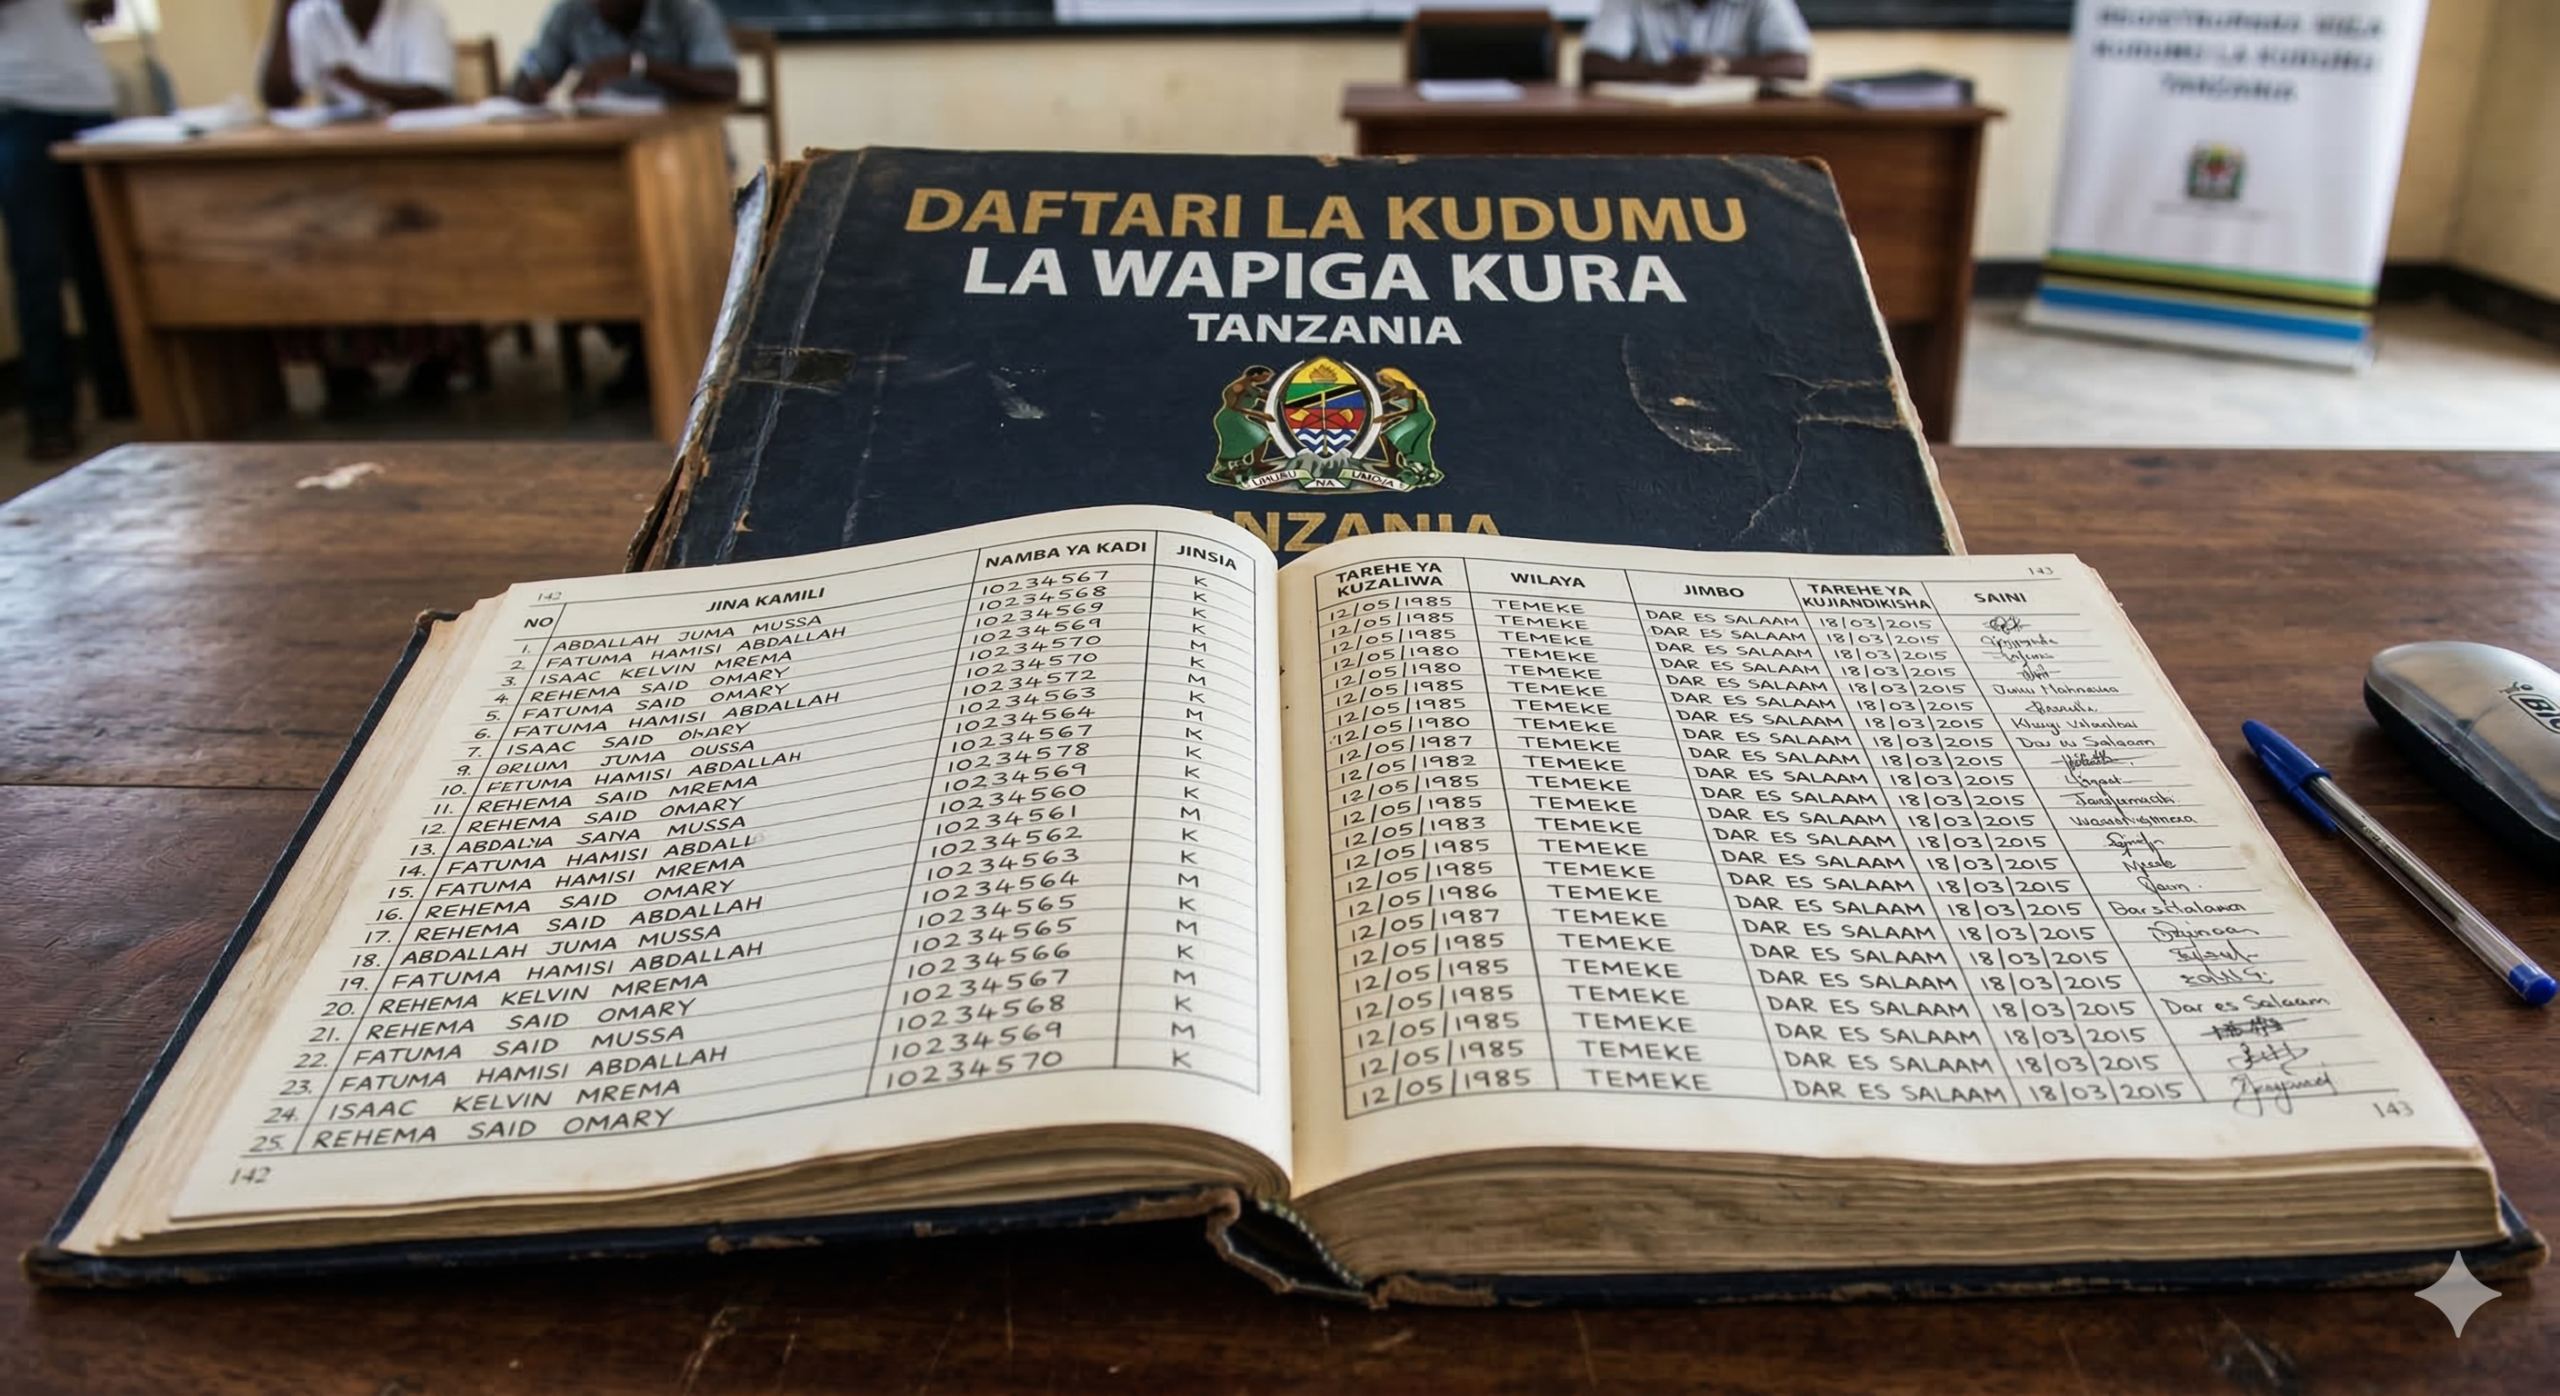 DAFTARI LA KUDUMU
LA WAPIGA KURA
TANZANIA
UHURU NA UMOJA
142
NO JINA KAMILI NAMBA YA KADI JINSIA
1. ABDALLAH JUMA MUSSA 10234567 K
2. FATUMA HAMISI ABDALLAH 10234568 K
3. ISAAC KELVIN MREMA 10234569 K
4. REHEMA SAID OMARY 10234569 K
5. FATUMA SAID OMARY 10234570 M
6. FATUMA HAMISI ABDALLAH 10234570 K
7. ISAAC SAID 10234572 M
9. JUMA OUSSA 10234563 K
10. HAMISI ABDALLAH 10234564 M
11. REHEMA SAID MREMA 10234567 K
12. REHEMA SAID OMARY 10234578 K
13. SANA MUSSA 10234569 K
14. FATUMA HAMISI ABDALL 10234560 K
15. FATUMA HAMISI MREMA 10234561 M
16. REHEMA SAID OMARY 10234562 K
17. REHEMA SAID ABDALLAH 10234563 K
18. ABDALLAH JUMA MUSSA 10234564 M
19. FATUMA HAMISI ABDALLAH 10234565 K
20. REHEMA KELVIN MREMA 10234565 M
21. REHEMA SAID OMARY 10234566 K
22. FATUMA SAID MUSSA 10234567 M
23. FATUMA HAMISI ABDALLAH 10234568 K
24. ISAAC KELVIN MREMA 10234569 M
25. REHEMA SAID OMARY 10234570 K
142
143
TAREHE YA KUZALIWA WILAYA JIMBO TAREHE YA KUJIANDIKISHA SAINI
12/05/1985 TEMEKE DAR ES SALAAM 18/03/2015
12/05/1985 TEMEKE DAR ES SALAAM 18/03/2015
12/05/1985 TEMEKE DAR ES SALAAM 18/03/2015
12/05/1980 TEMEKE DAR ES SALAAM 18/03/2015
12/05/1980 TEMEKE DAR ES SALAAM 18/03/2015
12/05/1985 TEMEKE DAR ES SALAAM 18/03/2015
12/05/1985 TEMEKE DAR ES SALAAM 18/03/2015
12/05/1980 TEMEKE DAR ES SALAAM 18/03/2015
12/05/1987 TEMEKE DAR ES SALAAM 18/03/2015
12/05/1982 TEMEKE DAR ES SALAAM 18/03/2015
12/05/1985 TEMEKE DAR ES SALAAM 18/03/2015
12/05/1985 TEMEKE DAR ES SALAAM 18/03/2015
12/05/1983 TEMEKE DAR ES SALAAM 18/03/2015
12/05/1985 TEMEKE DAR ES SALAAM 18/03/2015
12/05/1985 TEMEKE DAR ES SALAAM 18/03/2015
12/05/1986 TEMEKE DAR ES SALAAM 18/03/2015
12/05/1987 TEMEKE DAR ES SALAAM 18/03/2015
12/05/1985 TEMEKE DAR ES SALAAM 18/03/2015
12/05/1985 TEMEKE DAR ES SALAAM 18/03/2015
12/05/1985 TEMEKE DAR ES SALAAM 18/03/2015 Dar es Salaam
12/05/1985 TEMEKE DAR ES SALAAM 18/03/2015
12/05/1985 TEMEKE DAR ES SALAAM 18/03/2015
12/05/1985 TEMEKE DAR ES SALAAM 18/03/2015
143